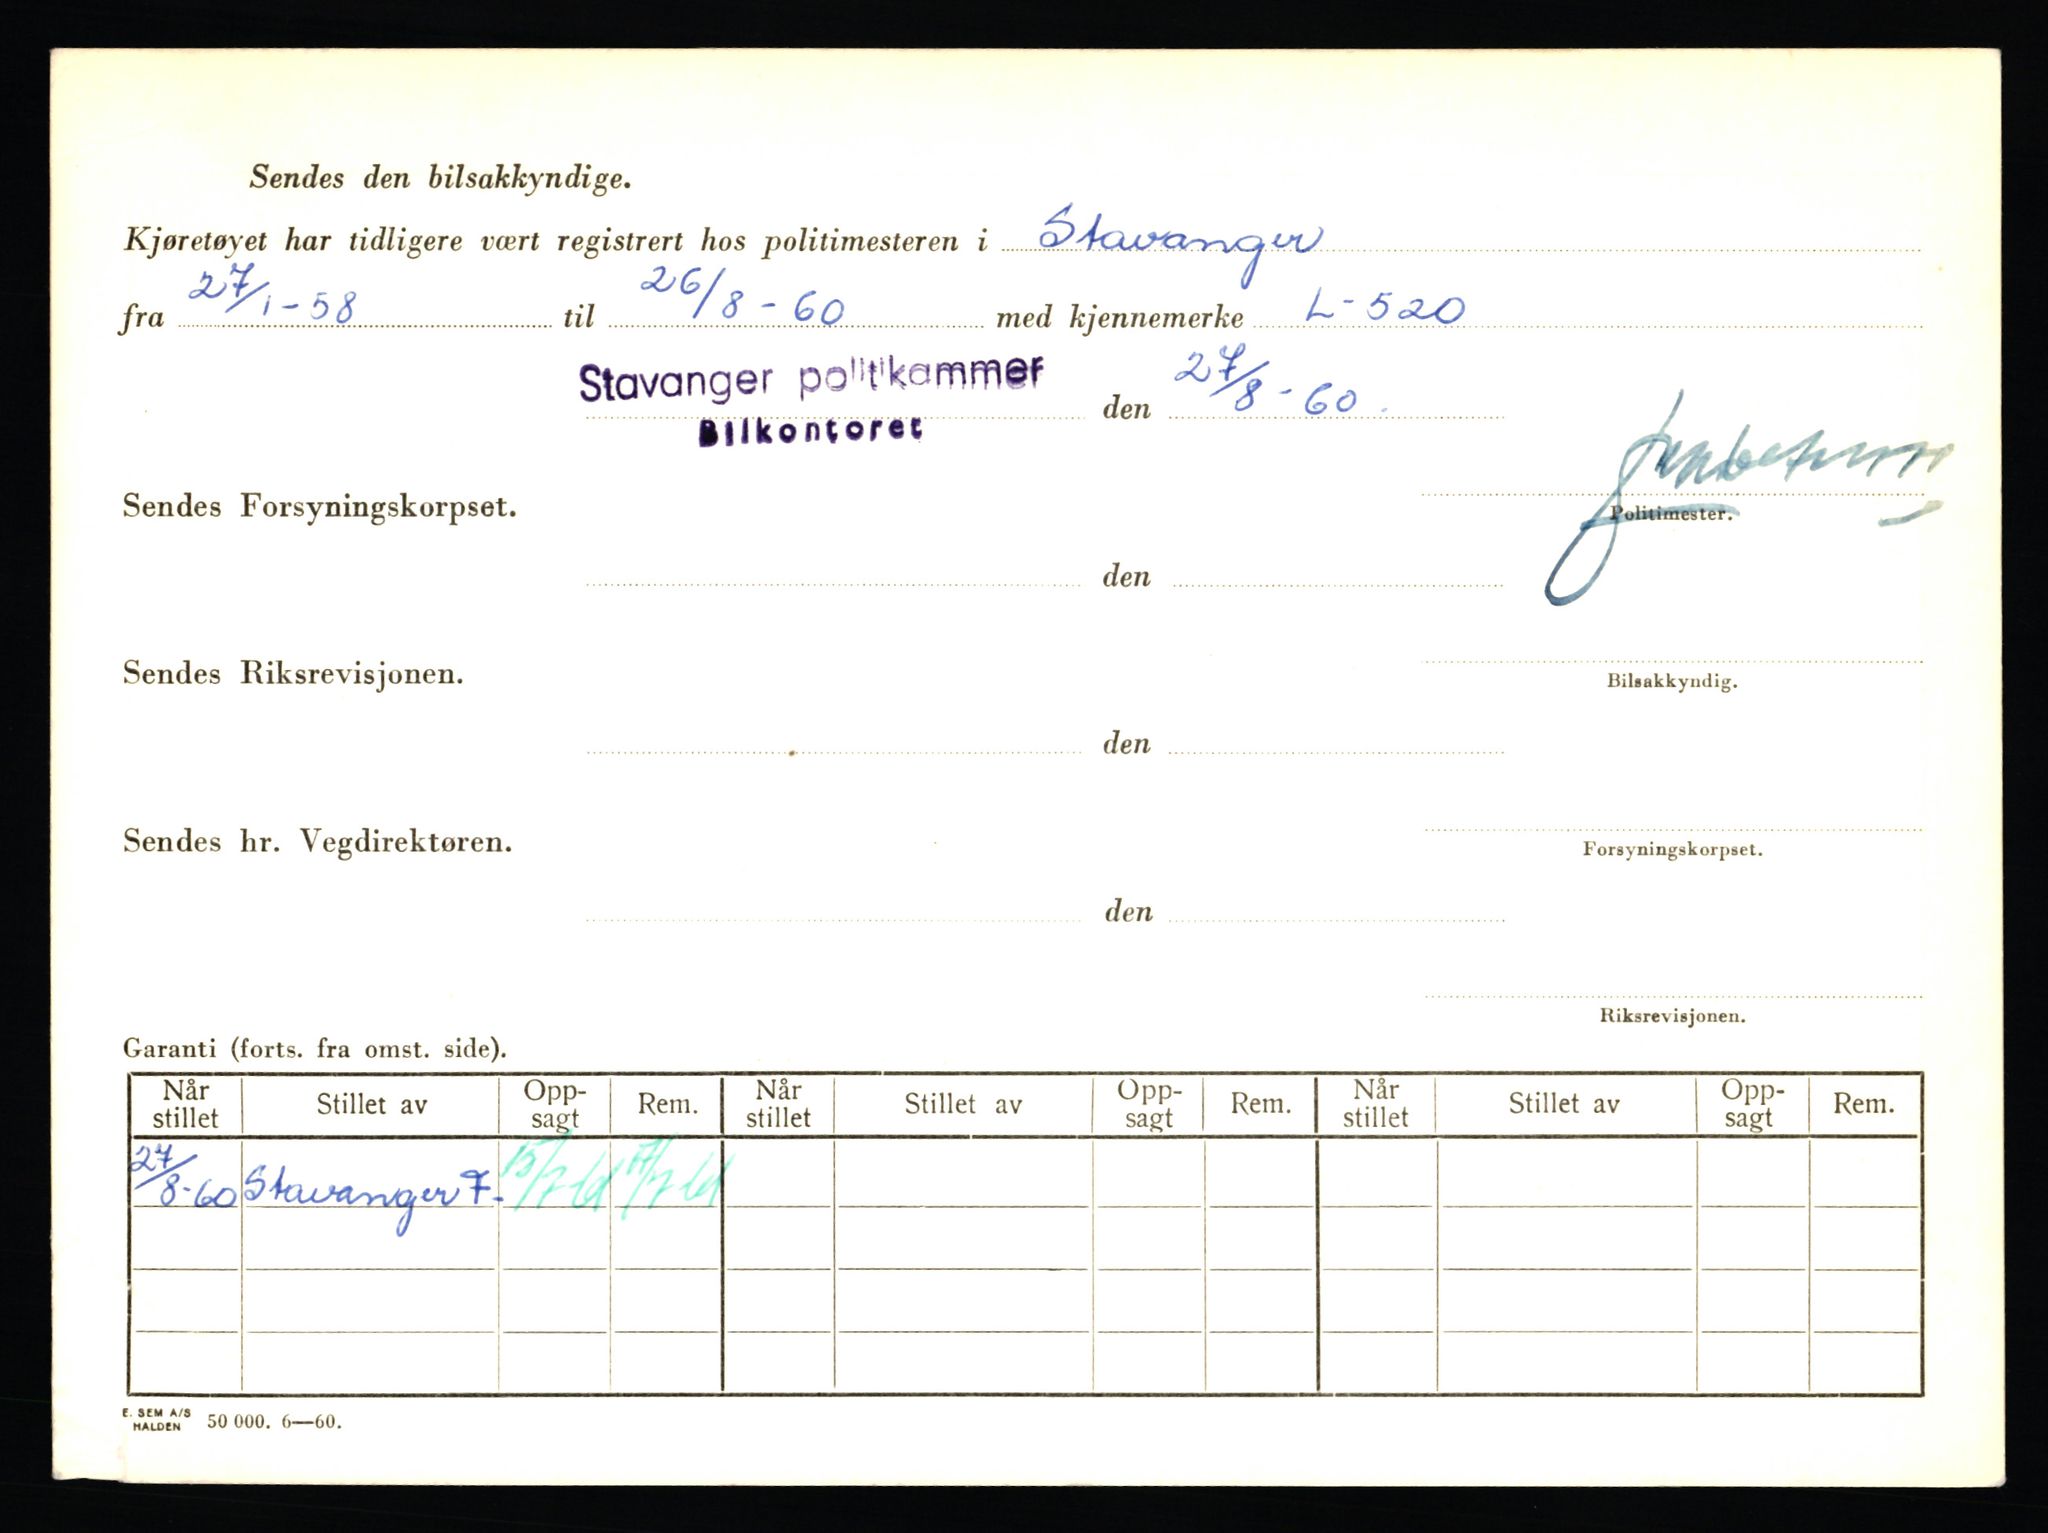 Sendes den bilsakkyndige.
Kjøretøyet har tidligere vært registrert hos politimesteren i Stavanger
fra 27/1-58 til 26/8-60 med kjennemerke L-520
Stavanger politikammer den 27/8-60.
Bilkontoret
Sendes Forsyningskorpset.
Politimester.
den
Sendes Riksrevisjonen.
Bilsakkyndig.
den
Sendes hr. Vegdirektøren.
Forsyningskorpset.
den
Riksrevisjonen.
Garanti (forts. fra omst. side).
Når stillet Stillet av Opp-sagt Rem. Når stillet Stillet av Opp-sagt Rem. Når stillet Stillet av Opp-sagt Rem.
27/8-60 Stavanger F. 15/7-61 17/7-61
E. SEM A/S
HALDEN 50 000. 6—60.